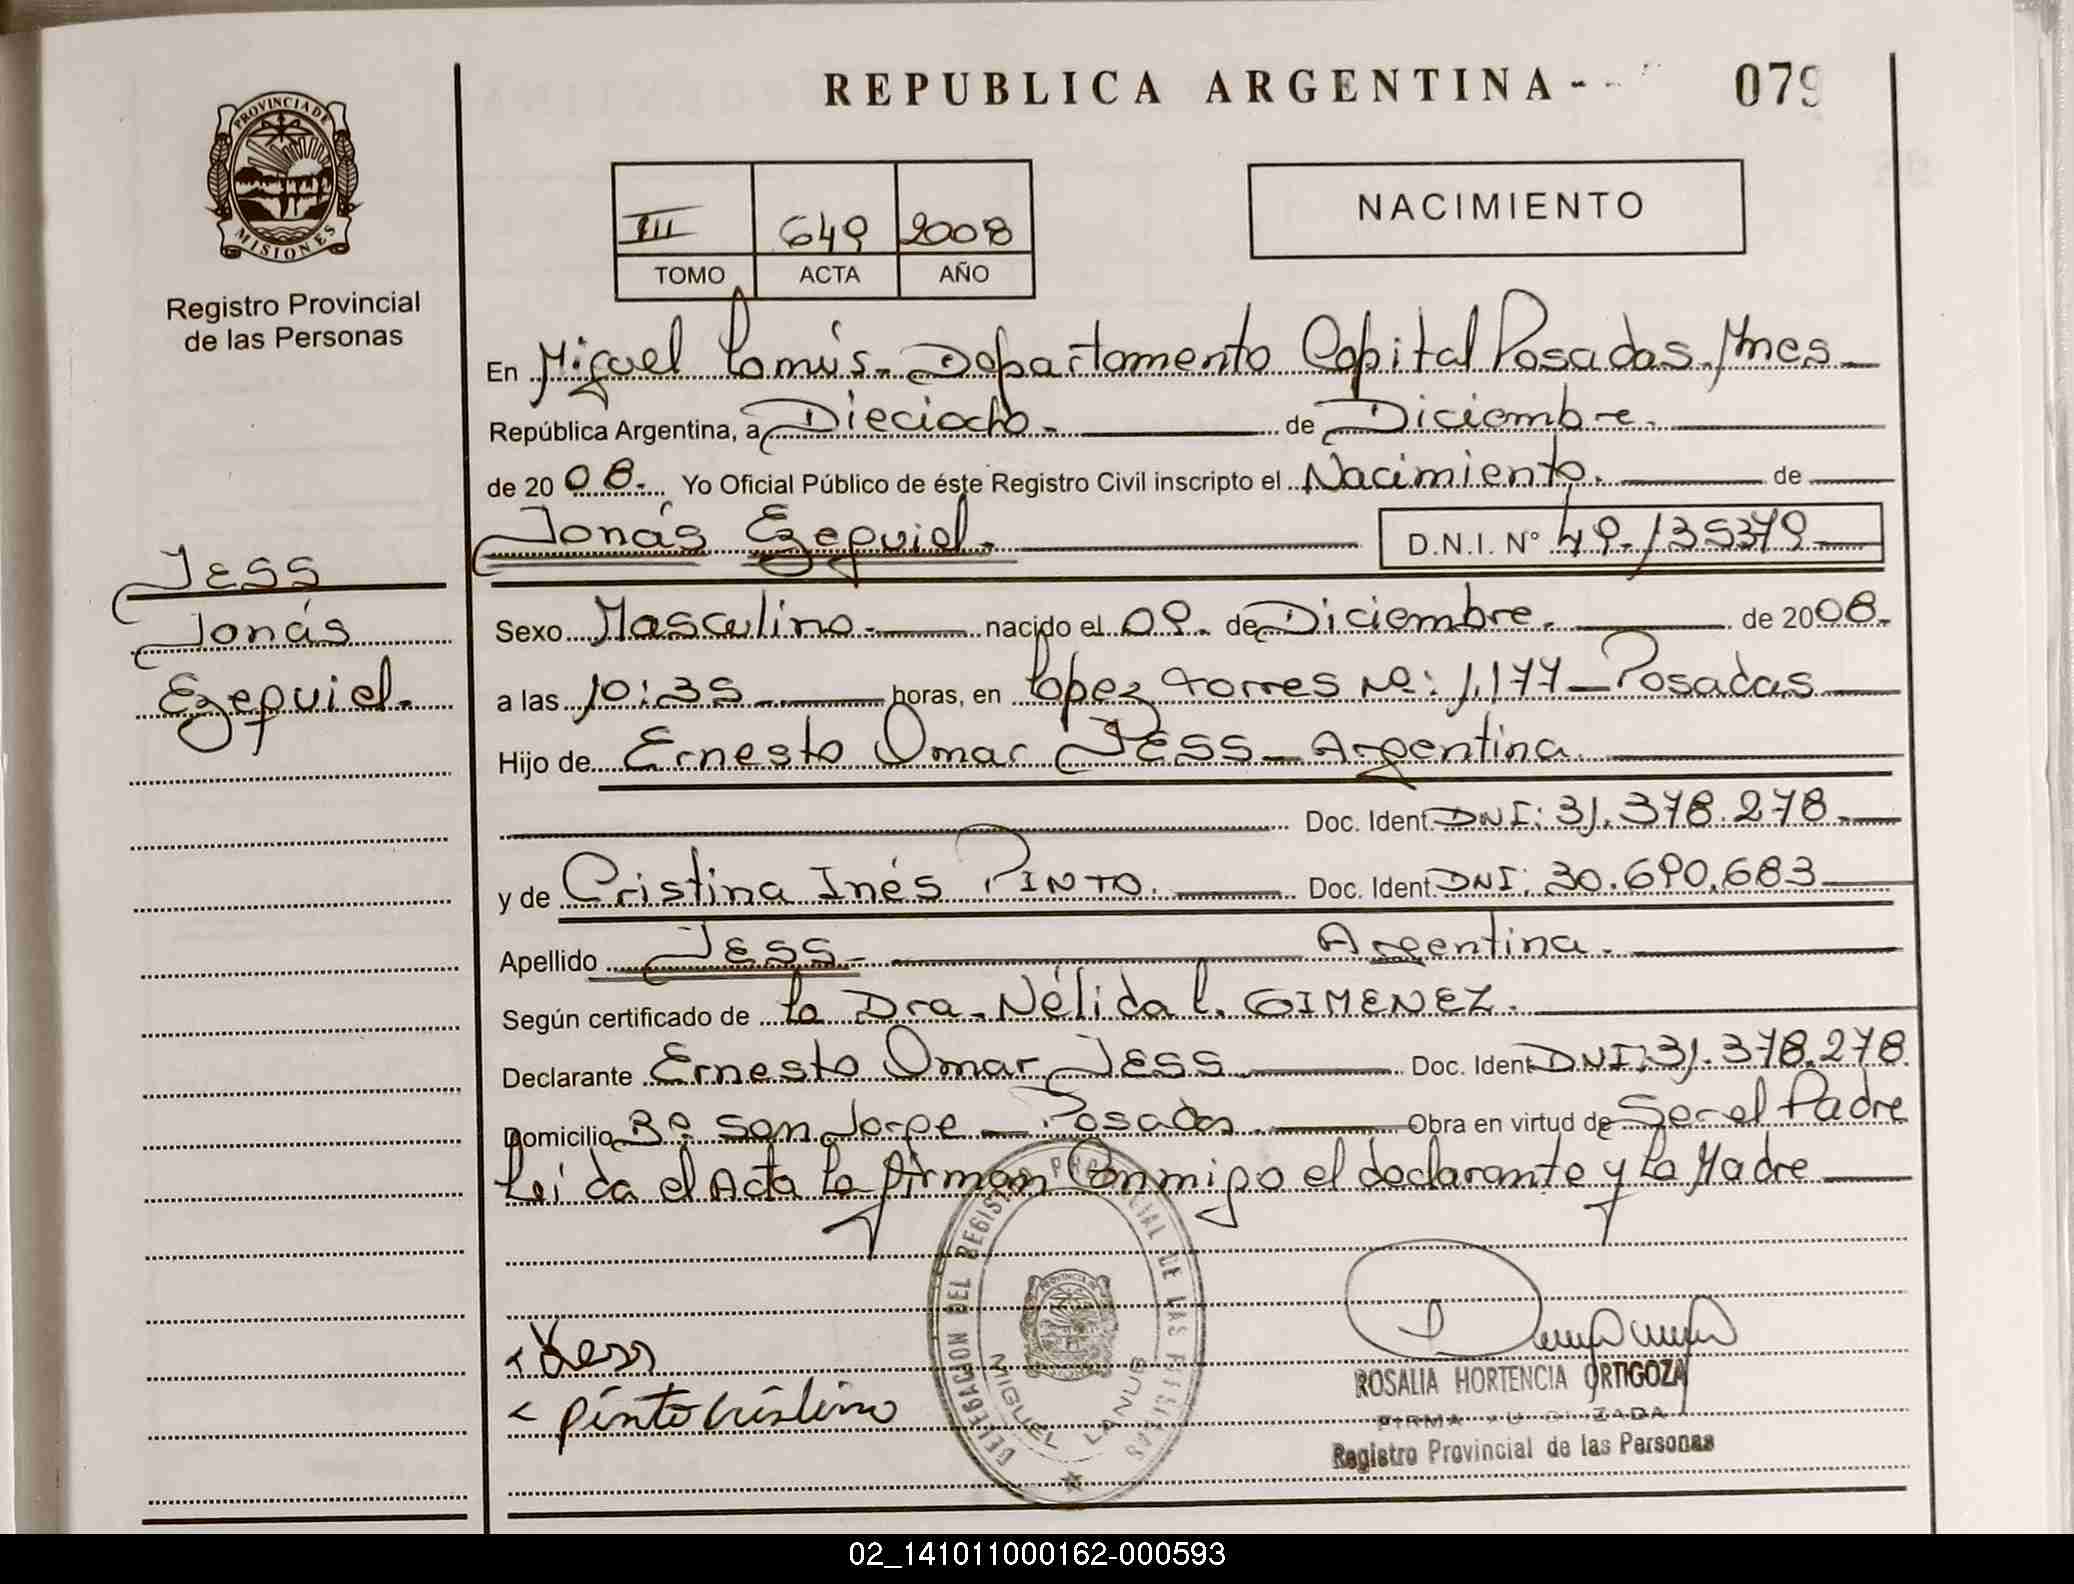 REPUBLICA ARGENTINA
079
PROVINCIA DE
MISIONES
Registro Provincial
de las Personas
III 649 2008
TOMO ACTA AÑO
NACIMIENTO
En Miguel Lanús. Departamento Capital Posadas. Mnes
República Argentina, a Dieciocho. de Diciembre.
de 2008. Yo Oficial Público de éste Registro Civil inscripto el Nacimiento. de
Jonás Ezequiel. D.N.I. N° 49.135379
JESS
Jonás
Ezequiel.
Sexo Masculino. nacido el 09. de Diciembre. de 2008.
a las 10:35 horas, en López Torres Nº: 1.177 - Posadas
Hijo de Ernesto Omar JESS - Argentina.
Doc. Ident. DNI: 31.378.278
y de Cristina Inés PINTO. Doc. Ident. DNI: 30.690.683
Apellido JESS - Argentina.
Según certificado de la Dra. Nélida L. GIMENEZ.
Declarante Ernesto Omar JESS Doc. Ident DNI: 31.378.278.
Domicilio Bº San Jorge - Posadas. Obra en virtud de Ser el Padre
Leída el Acta la firman Conmigo el declarante y la Madre
Jess
Pinto Cristina
DELEGACION DEL REGISTRO PROVINCIAL DE LAS PERSONAS
MIGUEL LANUS
ROSALIA HORTENCIA ORTIGOZA
FIRMA AUTORIZADA
Registro Provincial de las Personas
02_141011000162-000593